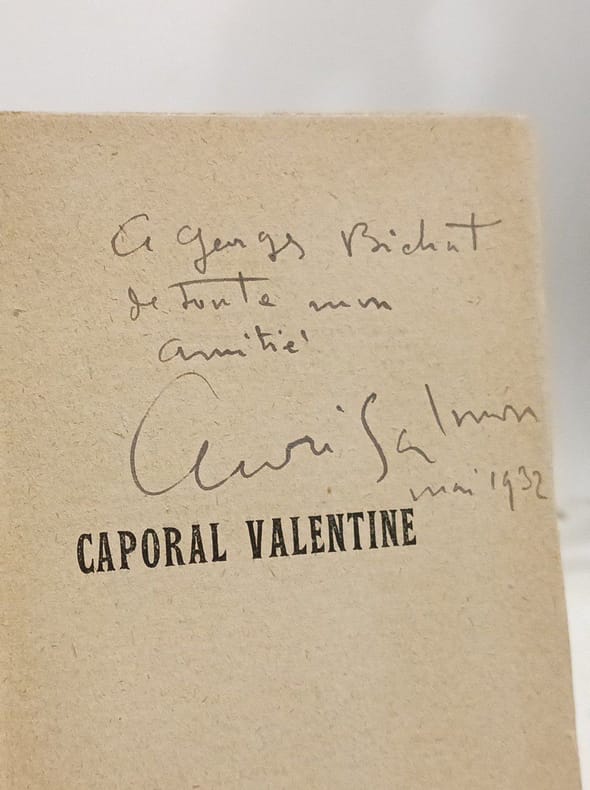 A Georges Bichat
de toute mon
amitié
André Salmon
mai 1932
CAPORAL VALENTINE